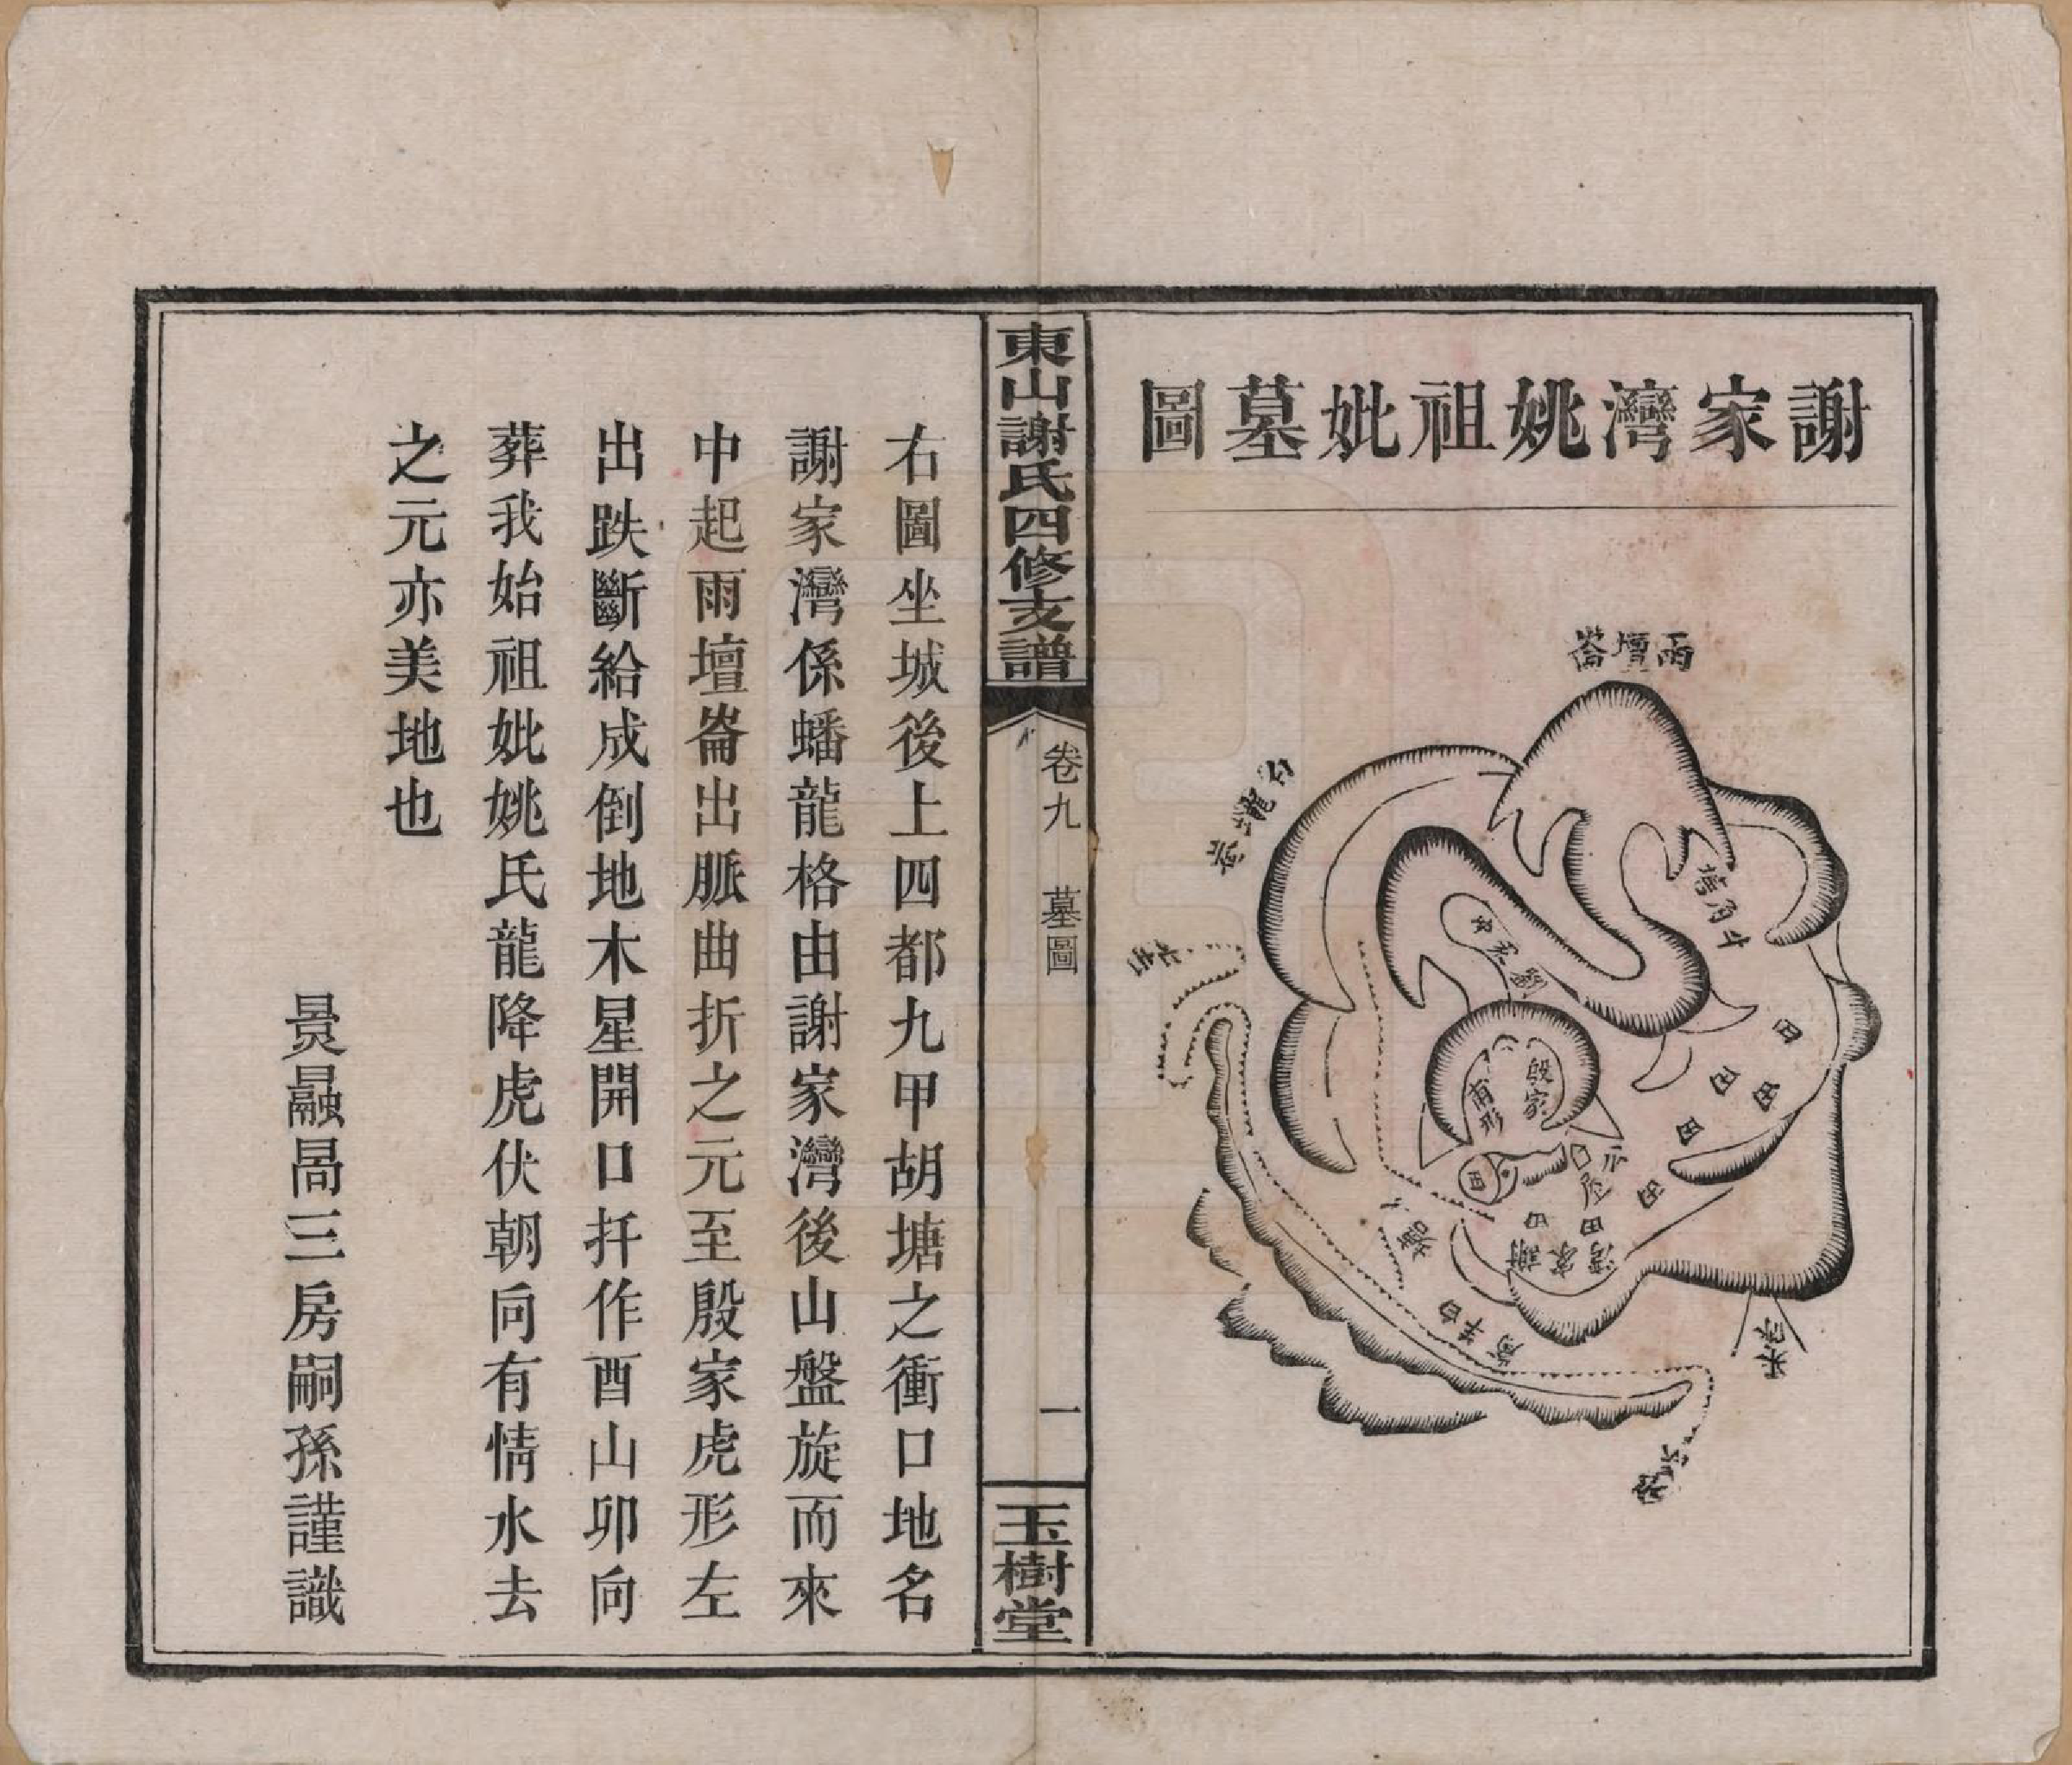 謝家灣姚祖妣墓圖
雨壇崙
斗角塆
殷家
有形
田
田
田
田
田
田
田
田
屋
謝家灣
白羊窩
來水
東山謝氏四修支譜
卷九 墓圖
一
玉樹堂
右圖坐城後上四都九甲胡塘之衝口地名
謝家灣係蟠龍格由謝家灣後山盤旋而來
中起雨壇崙出脈曲折之元至殷家虎形左
出跌斷給成倒地木星開口扦作酉山卯向
葬我始祖妣姚氏龍降虎伏朝向有情水去
之元亦美地也
三房嗣孫謹識